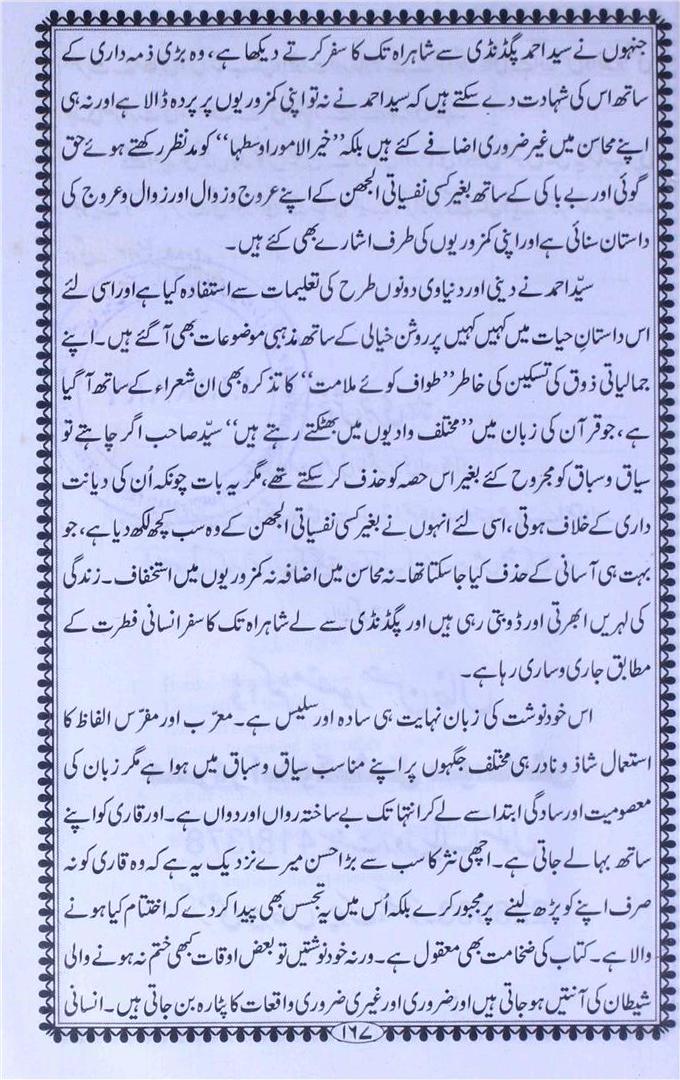 جنہوں نے سید احمد پگڈنڈی سے شاہراہ تک کا سفر کرتے دیکھا ہے، وہ بڑی ذمہ داری کے
ساتھ اس کی شہادت دے سکتے ہیں کہ سید احمد نے نہ تو اپنی کمزوریوں پر پردہ ڈالا ہے اور نہ ہی
اپنے محاسن میں غیر ضروری اضافے کئے ہیں بلکہ ”خیر الامور اوسطہا“ کو مدنظر رکھتے ہوئے حق
گوئی اور بے باکی کے ساتھ بغیر کسی نفسیاتی الجھن کے اپنے عروج و زوال اور زوال و عروج کی
داستان سنائی ہے اور اپنی کمزوریوں کی طرف اشارے بھی کئے ہیں۔
سیّد احمد نے دینی اور دنیاوی دونوں طرح کی تعلیمات سے استفادہ کیا ہے اور اسی لئے
اس داستانِ حیات میں کہیں کہیں پر روشن خیالی کے ساتھ مذہبی موضوعات بھی آ گئے ہیں۔ اپنے
جمالیاتی ذوق کی تسکین کی خاطر ”طواف کوئے ملامت“ کا تذکرہ بھی ان شعراء کے ساتھ آ گیا
ہے، جو قرآن کی زبان میں ”مختلف وادیوں میں بھٹکتے رہتے ہیں“ سیّد صاحب اگر چاہتے تو
سیاق و سباق کو مجروح کئے بغیر اس حصہ کو حذف کر سکتے تھے، مگر یہ بات چونکہ اُن کی دیانت
داری کے خلاف ہوتی، اسی لئے انہوں نے بغیر کسی نفسیاتی الجھن کے وہ سب کچھ لکھ دیا ہے، جو
بہت ہی آسانی کے حذف کیا جا سکتا تھا۔ نہ محاسن میں اضافہ نہ کمزوریوں میں استخفاف۔ زندگی
کی لہریں ابھرتی اور ڈوبتی رہی ہیں اور پگڈنڈی سے لے شاہراہ تک کا سفر انسانی فطرت کے
مطابق جاری و ساری رہا ہے۔
اس خودنوشت کی زبان نہایت ہی سادہ اور سلیس ہے۔ معرّب اور مفرّس الفاظ کا
استعمال شاذ و نادر ہی مختلف جگہوں پر اپنے مناسب سیاق و سباق میں ہوا ہے مگر زبان کی
معصومیت اور سادگی ابتدا سے لے کر انتہا تک بے ساختہ رواں اور دواں ہے۔ اور قاری کو اپنے
ساتھ بہا لے جاتی ہے۔ اچھی نثر کا سب سے بڑا حسن میرے نزدیک یہ ہے کہ وہ قاری کو نہ
صرف اپنے کو پڑھ لینے پر مجبور کرے بلکہ اُس میں یہ تجسس بھی پیدا کر دے کہ اختتام کیا ہونے
والا ہے۔ کتاب کی ضخامت بھی معقول ہے۔ ورنہ خودنوشتیں تو بعض اوقات کبھی ختم نہ ہونے والی
شیطان کی آنتیں ہو جاتی ہیں اور ضروری اور غیری ضروری واقعات کا پٹارہ بن جاتی ہیں۔ انسانی
۱۶۷